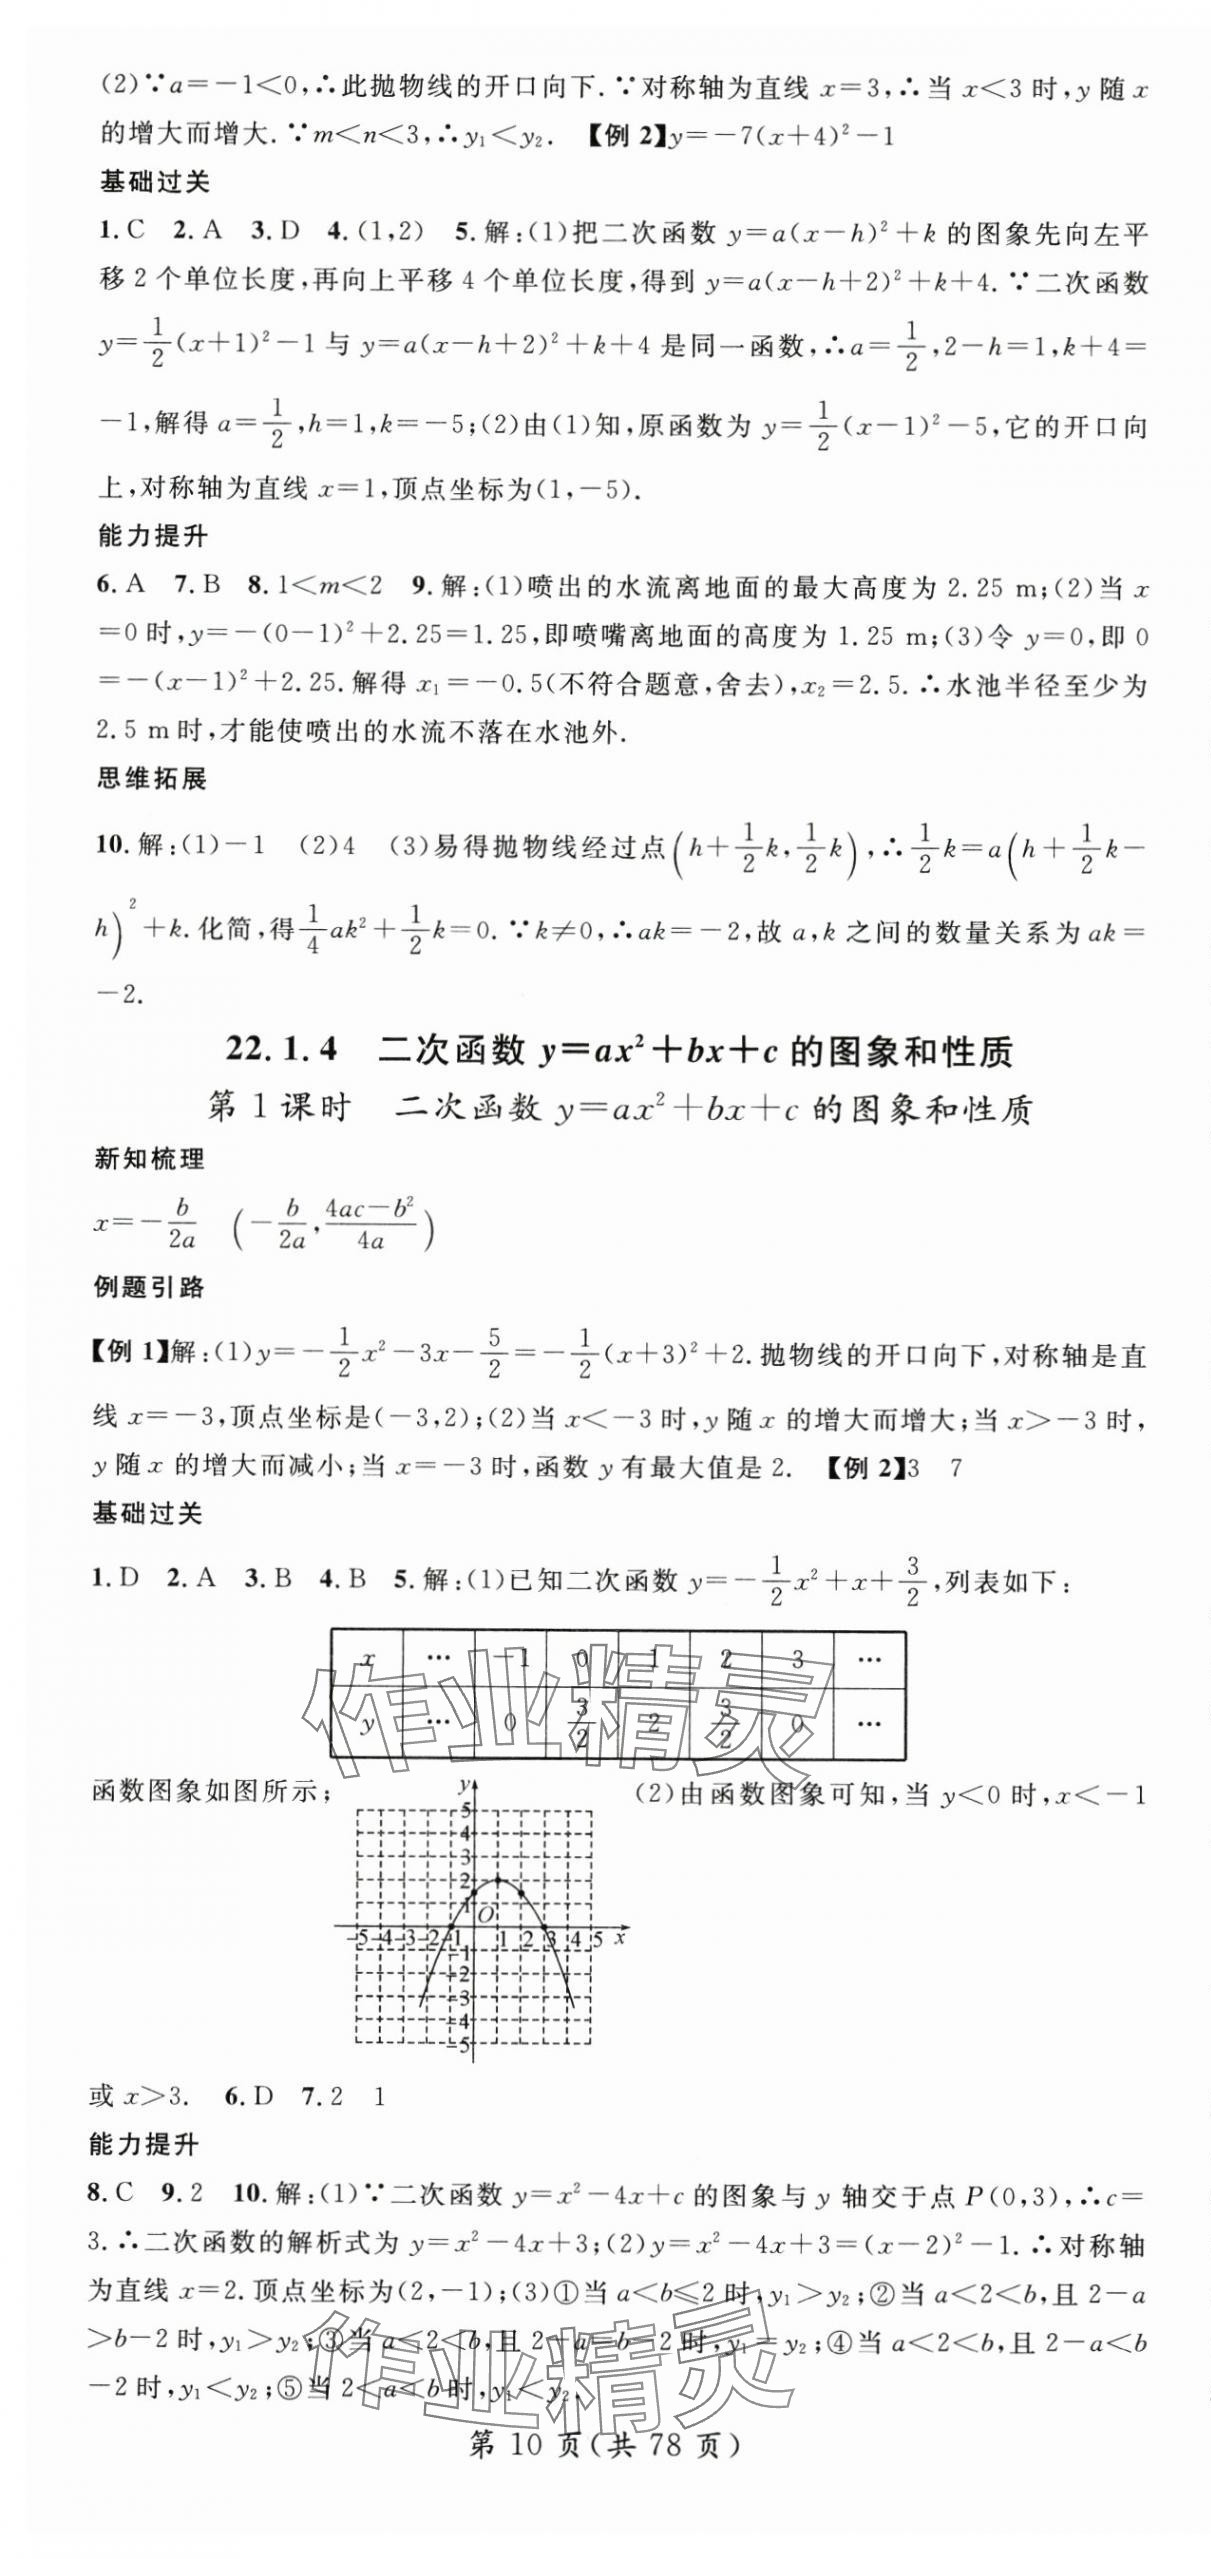 (2)∵a=-1<0,∴此抛物线的开口向下.∵对称轴为直线 x=3,∴当 x<3 时,y 随 x
的增大而增大.∵m<n<3,∴y₁<y₂. 【例 2】y=-7(x+4)²-1
基础过关
1.C 2.A 3.D 4.(1,2) 5.解:(1)把二次函数 y=a(x-h)²+k 的图象先向左平
移 2 个单位长度,再向上平移 4 个单位长度,得到 y=a(x-h+2)²+k+4.∵二次函数
y=1/2(x+1)²-1 与 y=a(x-h+2)²+k+4 是同一函数,∴a=1/2,2-h=1,k+4=
-1,解得 a=1/2,h=1,k=-5;(2)由(1)知,原函数为 y=1/2(x-1)²-5,它的开口向
上,对称轴为直线 x=1,顶点坐标为(1,-5).
能力提升
6.A 7.B 8.1<m<2 9.解:(1)喷出的水流离地面的最大高度为 2.25 m;(2)当 x
=0 时,y=-(0-1)²+2.25=1.25,即喷嘴离地面的高度为 1.25 m;(3)令 y=0,即 0
=-(x-1)²+2.25.解得 x₁=-0.5(不符合题意,舍去),x₂=2.5.∴水池半径至少为
2.5 m时,才能使喷出的水流不落在水池外.
思维拓展
10.解:(1)-1 (2)4 (3)易得抛物线经过点(h+1/2k,1/2k),∴1/2k=a(h+1/2k-
h)²+k.化简,得1/4ak²+1/2k=0.∵k≠0,∴ak=-2,故 a,k 之间的数量关系为 ak=
-2.
22.1.4 二次函数 y=ax²+bx+c 的图象和性质
第 1 课时 二次函数 y=ax²+bx+c 的图象和性质
新知梳理
x=-b/2a (-b/2a,(4ac-b²)/4a)
例题引路
【例 1】解:(1)y=-1/2x²-3x-5/2=-1/2(x+3)²+2.抛物线的开口向下,对称轴是直
线 x=-3,顶点坐标是(-3,2);(2)当 x<-3 时,y 随 x 的增大而增大;当 x>-3 时,
y 随 x 的增大而减小;当 x=-3 时,函数 y 有最大值是 2. 【例 2】3 7
基础过关
1.D 2.A 3.B 4.B 5.解:(1)已知二次函数 y=-1/2x²+x+3/2,列表如下:
x … -1 0 1 2 3 …
y … 0 3/2 2 3/2 0 …
函数图象如图所示; (2)由函数图象可知,当 y<0 时,x<-1
y
5
4
3
2
1
O
-5 -4 -3 -2 -1 1 2 3 4 5 x
-1
-2
-3
-4
-5
或 x>3. 6.D 7.2 1
能力提升
8.C 9.2 10.解:(1)∵二次函数 y=x²-4x+c 的图象与 y 轴交于点 P(0,3),∴c=
3.∴二次函数的解析式为 y=x²-4x+3;(2)y=x²-4x+3=(x-2)²-1.∴对称轴
为直线 x=2.顶点坐标为(2,-1);(3)①当 a<b≤2 时,y₁>y₂;②当 a<2<b,且 2-a
>b-2 时,y₁>y₂;③当 a<2<b,且 2-a=b-2 时,y₁=y₂;④当 a<2<b,且 2-a<b
-2 时,y₁<y₂;⑤当 2<a<b 时,y₁<y₂.
第 10 页(共 78 页)
作业精灵
作业精灵